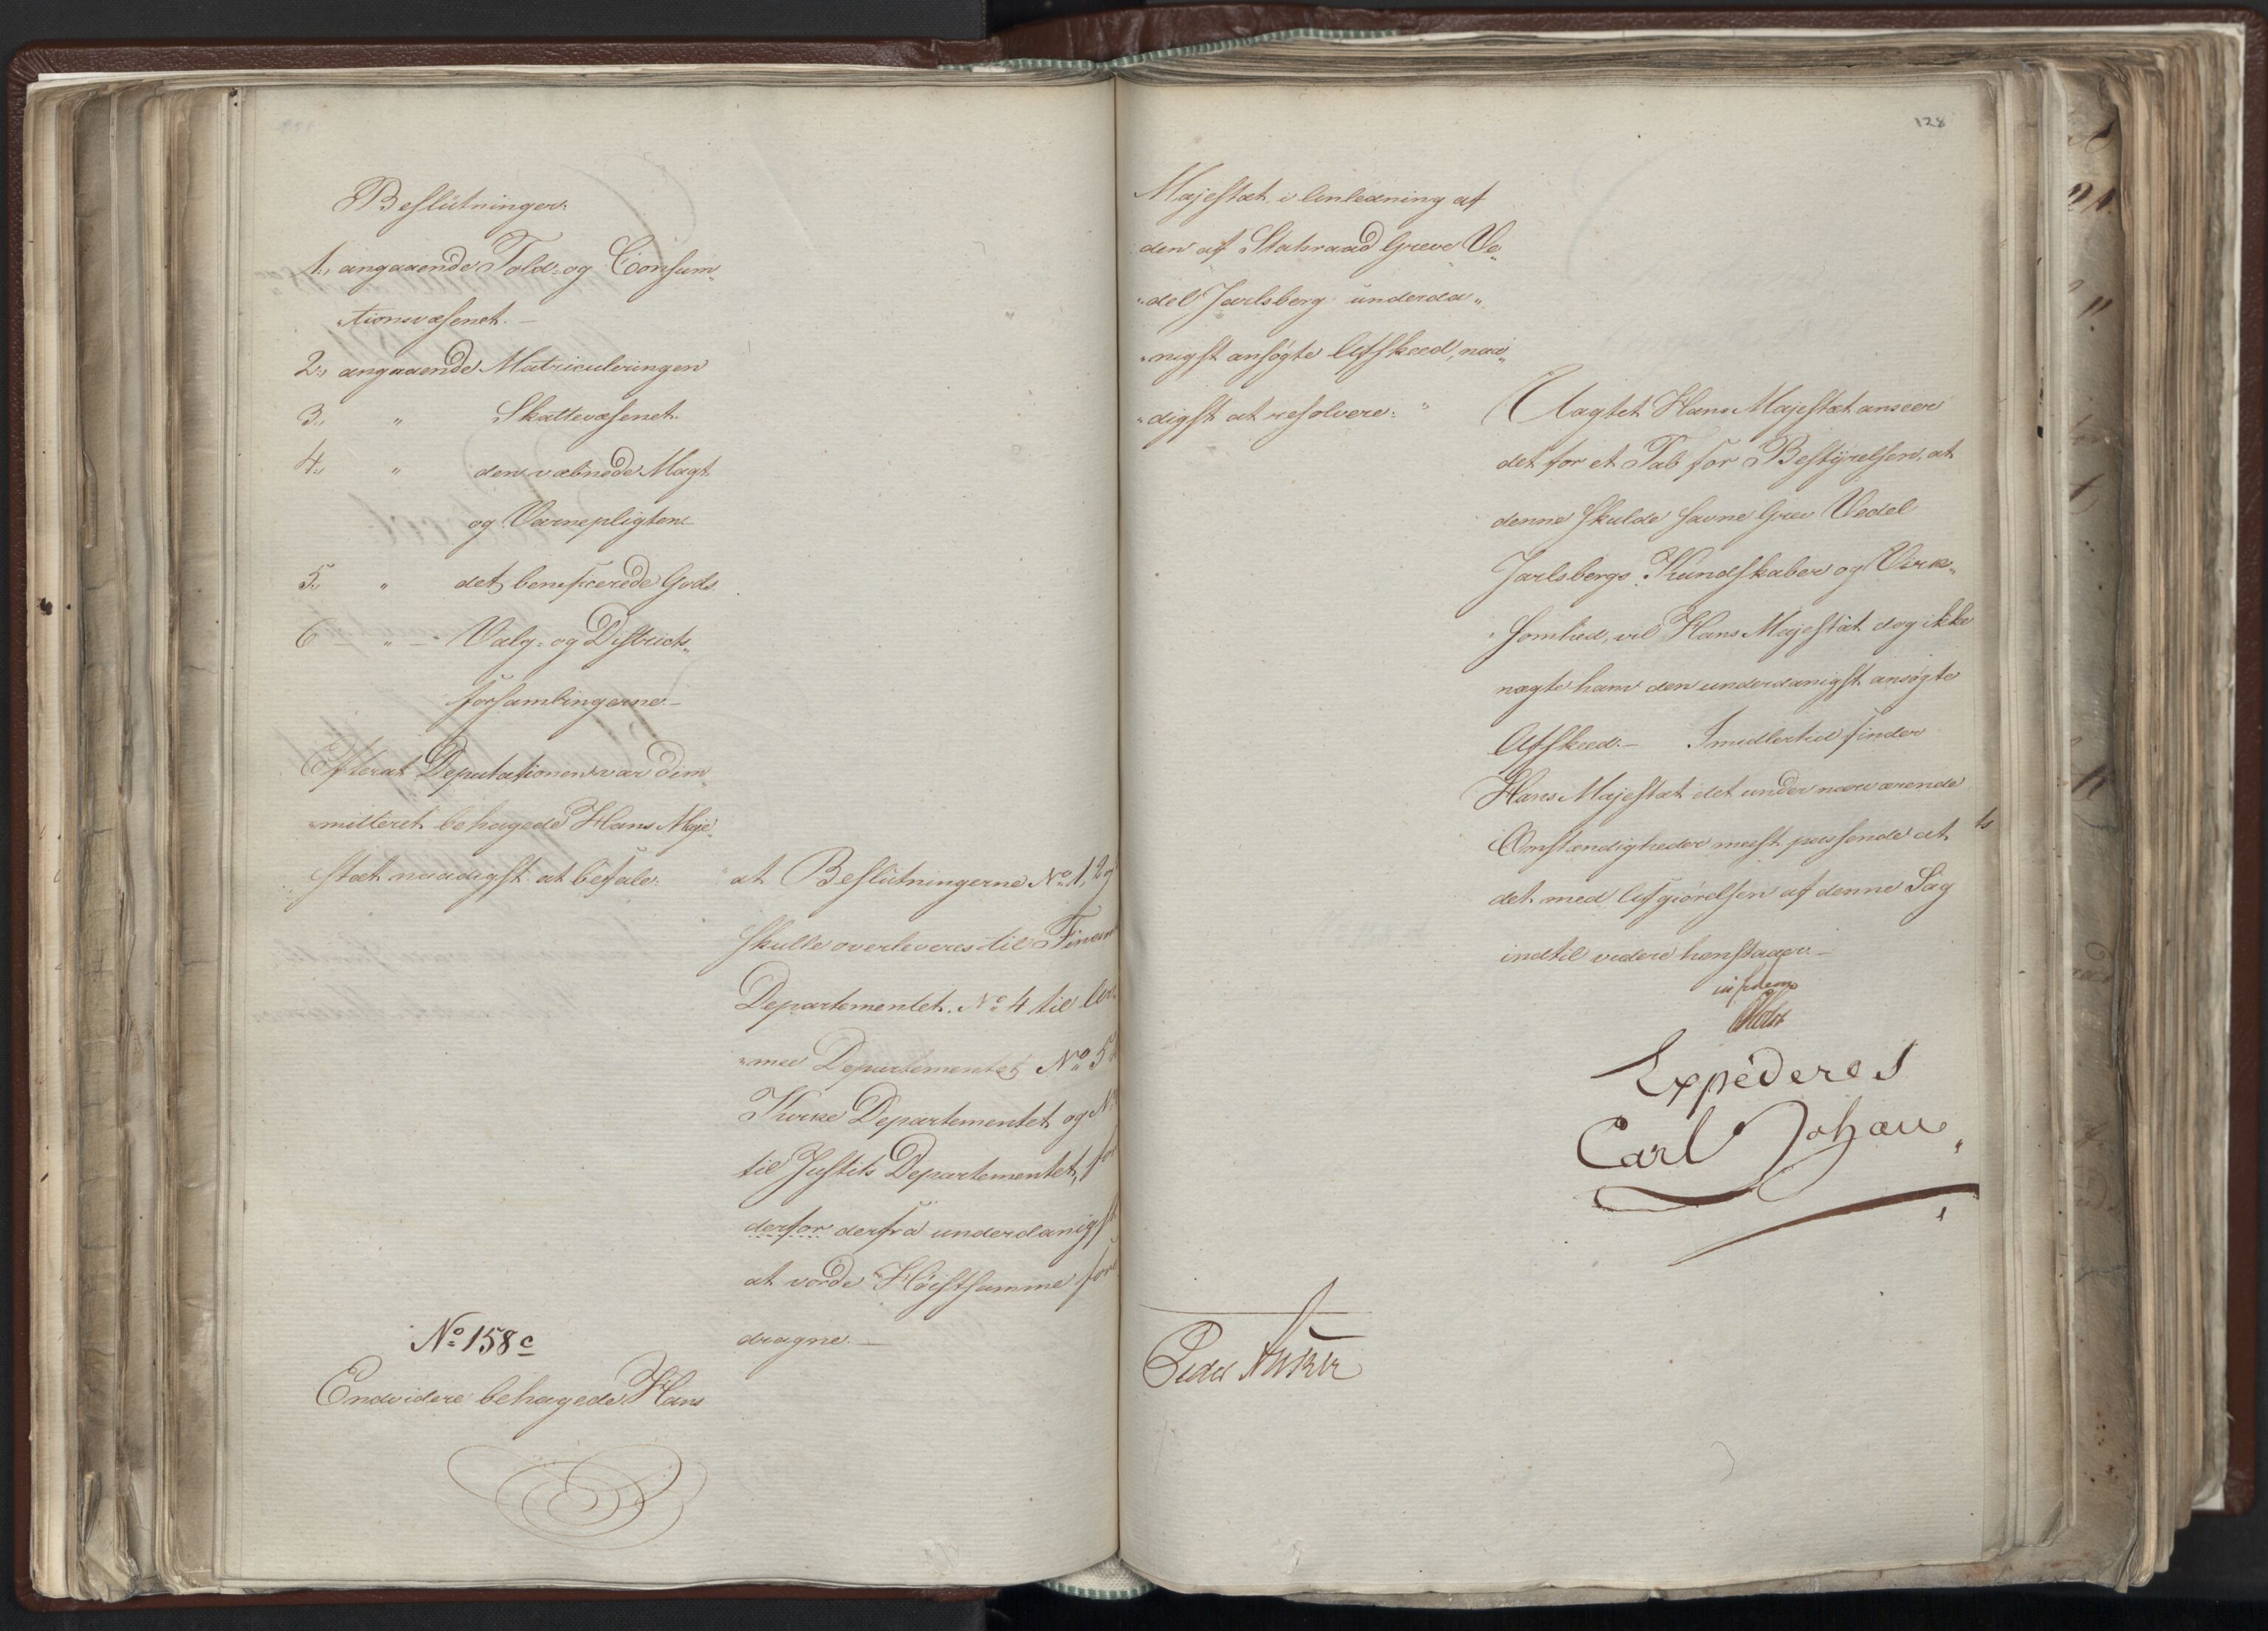 Beslutninger:
1., angaaende Told- og Consum„
„tionsvæsenet. —
2., angaaende Matriculeringen
3., „ Skattevæsenet.
4., „ den væbnede Magt
og Værnepligten.
5., „ det beneficerede Gods
6 „ — Valg- og Districts„
forsamlingerne. —
Efterat Deputationen var dim„
„mitteret behagede Hans Maje„
stæt naadigst at befale:
No 158 c
Endvidere behagede Hans
at Beslutningerne No 1, 2 og
skulle overleveres til Finan
Departementet. No 4 til Ar„
„mee Departementet No 5
Kirke Departementet og No
til Justits Departementet, for
derfor derfra underdanigst
at vorde Høistsamme fore
dragne. —
128
Majestæt i Anledning af
den af Statsraad Greve Ve„
„del Jarlsberg underda„
„nigst ansøgte Afskeed, naa„
„digst at resolvere: "
Uagtet Hans Majestæt anseer
det for et Tab for Bestyrelsen, at
denne skulde savne Grev Vedel
Jarlsbergs Kundskaber og Virk„
„somhed, vil Hans Majestæt dog ikke
nægte ham den underdanigst ansøgte
Afskeed. — Imidlertid finder
Hans Majestæt det under nærværende
Omstændigheder meest passende at
det med Afgiørelsen af denne Sag
indtil videre henstaaer. —
Expéderes
Carl Johan
Peder